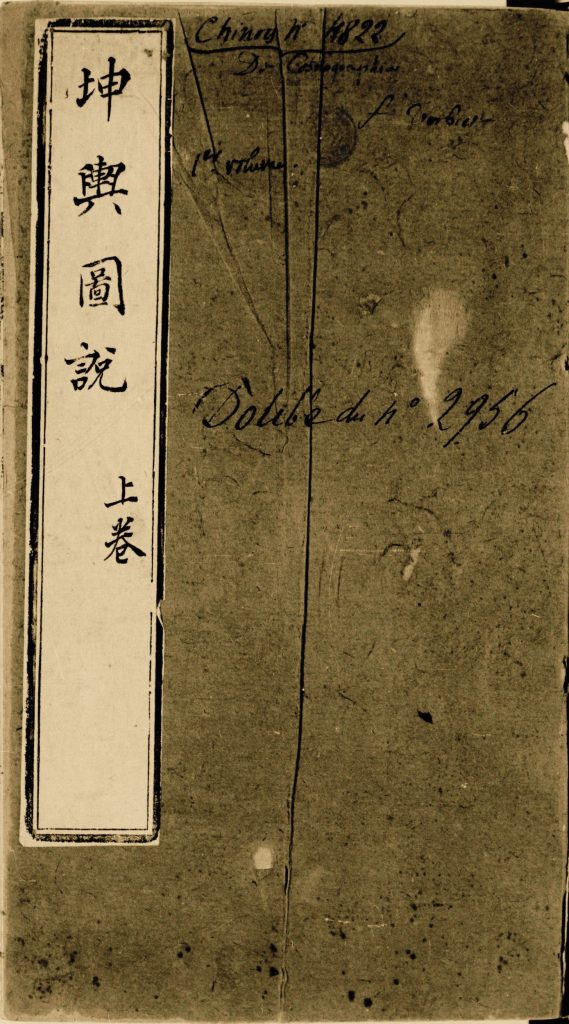 坤輿圖說
上卷
Chinois n° 4822
De Cosmographia
1er volume.
Double du n° 2956